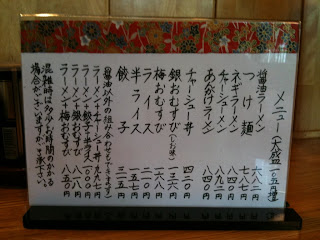 メニュー(大盛一〇五円増)
醤油ラーメン 六八二
つけ麺 七八七
ネギラーメン
チャーシューメン 八九二
あんかけラーメン 八四〇
チャーシュー丼 四二〇
銀おむすび(しお味) 一三六
梅おむすび 一六八
ライス 二一〇
半ライス 一五七
餃子 三一五
(醤油以外の組み合わせもできます)
ラーメン+チャー丼
ラーメン+餃子+半ライス
ラーメン+銀おむすび 八一八
ラーメン+梅おむすび 八五〇
混雑時は多少お時間のかかる
場合がございますがご了承下さい。